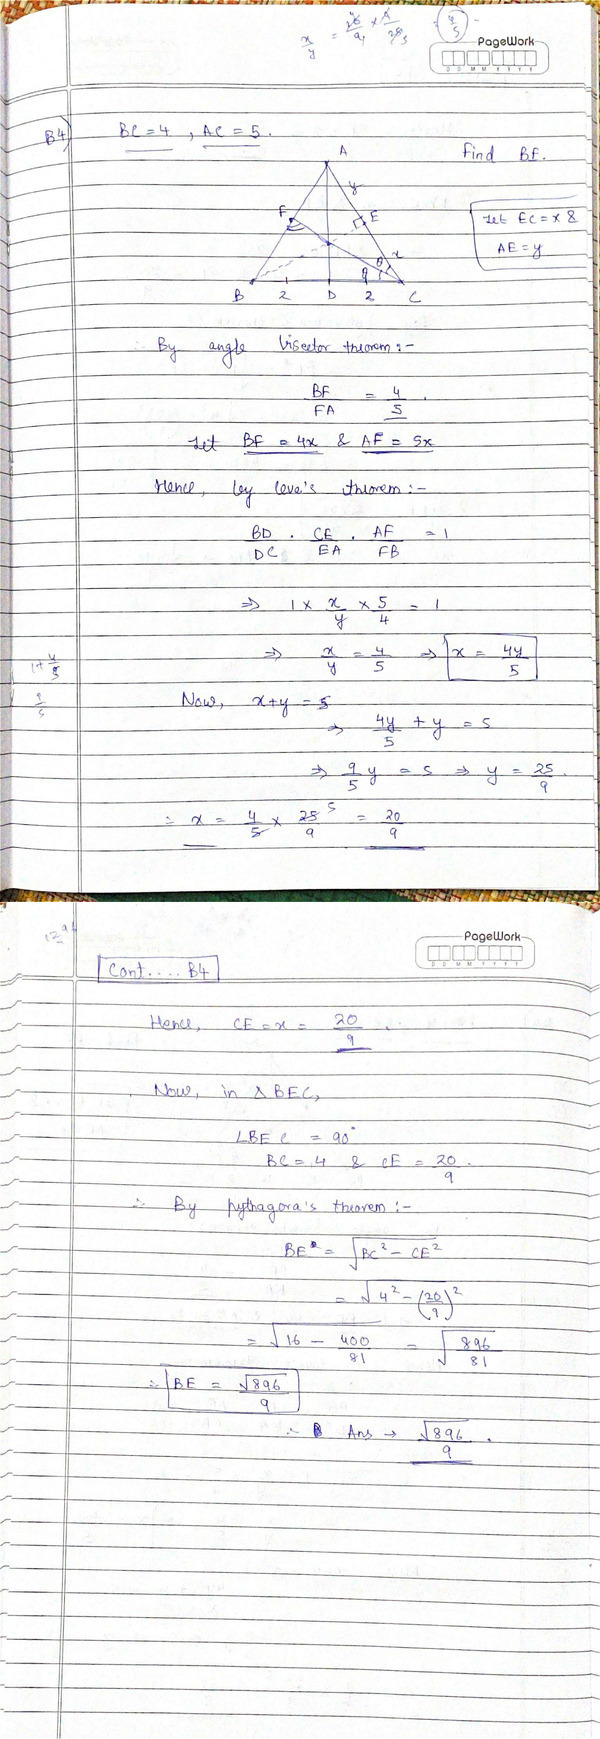 x/y = 20/9 × 9/25 = 4/5
PageWork
D D M M Y Y Y Y
B4) BC = 4 , AC = 5.
Find BE.
A
y
F
E
Let EC = x &
AE = y
θ x
θ
B 2 D 2 C
By angle bisector theorem :-
BF/FA = 4/5 .
Let BF = 4x & AF = 5x
Hence, by ceva's theorem :-
BD/DC . CE/EA . AF/FB = 1
⇒ 1 × x/y × 5/4 = 1
⇒ x/y = 4/5 ⇒ x = 4y/5
1+4/5
9/5
Now, x+y = 5
⇒ 4y/5 + y = 5
⇒ 9/5 y = 5 ⇒ y = 25/9 .
∴ x = 4/5 × 25/9 5 = 20/9
PageWork
D D M M Y Y Y Y
Cont.... B4
Hence, CE = x = 20/9 .
Now, in △BEC,
∠BEC = 90°
BC = 4 & CE = 20/9 .
∴ By pythagora's theorem :-
BE = √BC² - CE²
= √4² - (20/9)²
= √16 - 400/81 = √896/81
∴ BE = √896/9
∴ Ans → √896/9 .